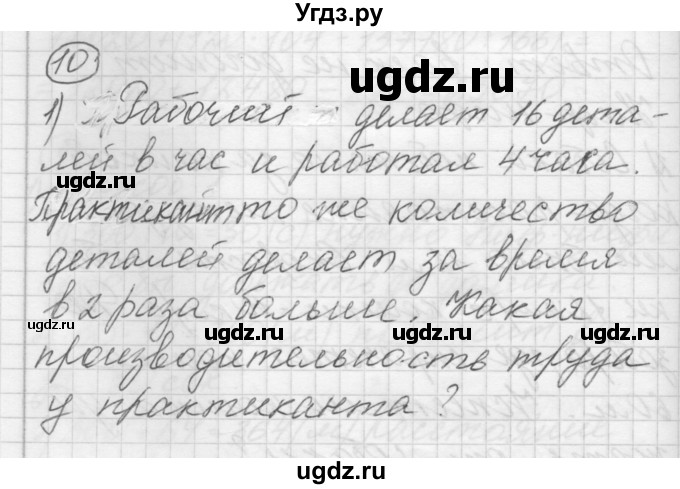 Угдз.ру
10
ugdz.ru
1) Рабочий делает 16 дета-
лей в час и работал 4 часа.
ugdz.ru
ugdz.ru
Практикант то же количество
деталей делает за время
в 2 раза больше. Какая
ugdz.ru
ugdz.ru
ugdz.ru
производительность труда
у практиканта?
ugdz.ru